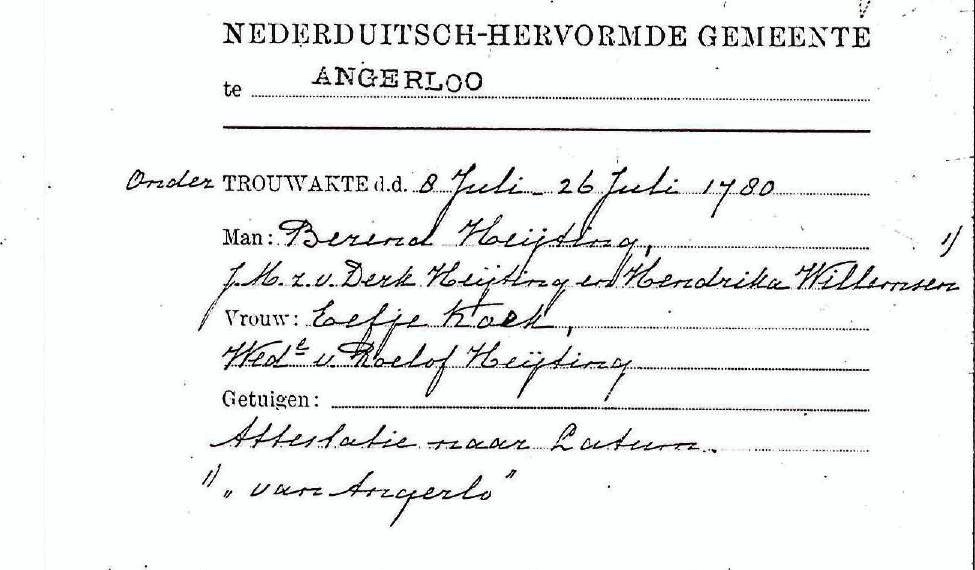 NEDERDUITSCH-HERVORMDE GEMEENTE
te ANGERLOO
Onder TROUWAKTE d.d. 8 Juli - 26 Juli 1780
Man: Berend Heijting, 1)
J.M. z.v. Derk Heijting en Hendrika Willemsen
Vrouw: Eefje Kock,
Wede v. Roelof Heijting
Getuigen:
Attestatie naar Latum.
1) „ van Angerlo "